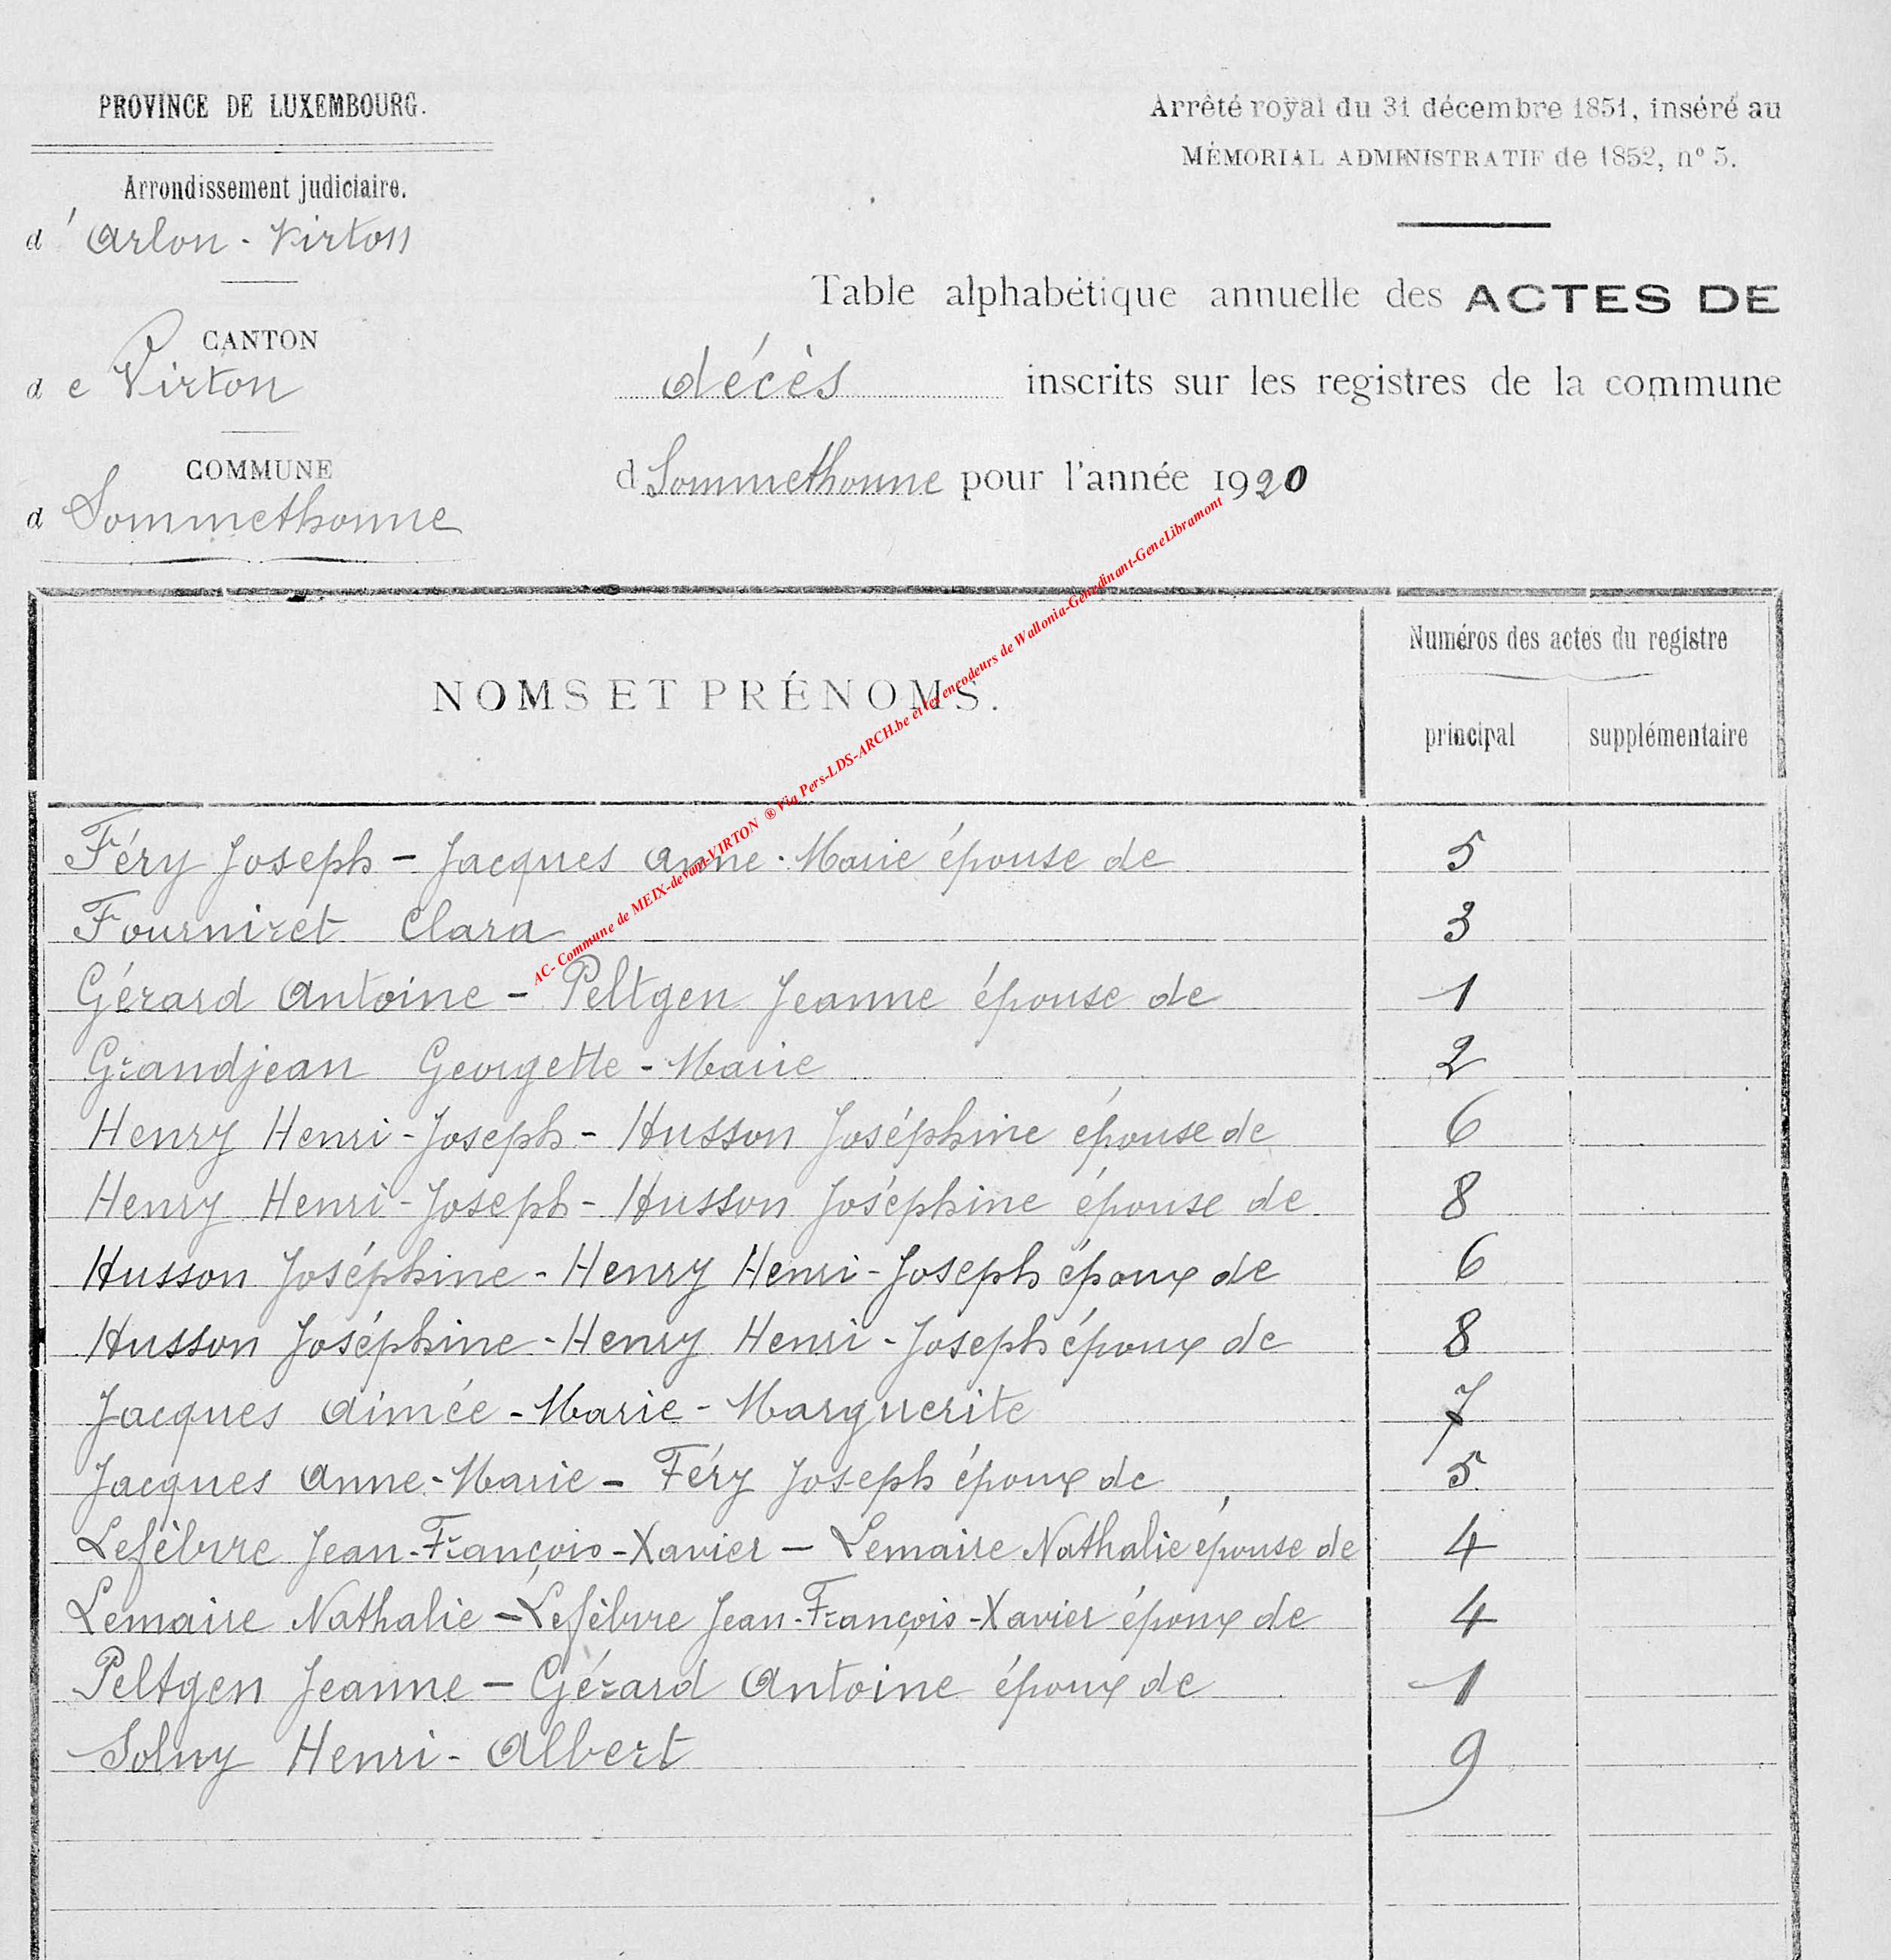 PROVINCE DE LUXEMBOURG.
Arrondissement judiciaire.
d' Arlon - Virton
CANTON
de Virton
COMMUNE
d Sommethonne
Arrêté royal du 31 décembre 1851, inséré au
MÉMORIAL ADMINISTRATIF de 1852, nº 5.
Table alphabétique annuelle des ACTES DE
décès inscrits sur les registres de la commune
d Sommethonne pour l'année 1920
AC- Commune de MEIX-devant-VIRTON ® Via Pers-LDS-ARCH.be et les encodeurs de Wallonia-Genedinant-GeneLibramont
NOMS ET PRÉNOMS.
Numéros des actes du registre
principal supplémentaire
Féry Joseph - Jacques Anne-Marie épouse de 5
Fourniret Clara 3
Gérard Antoine - Peltgen Jeanne épouse de 1
Grandjean Georgette - Marie 2
Henry Henri-Joseph - Husson Joséphine épouse de 6
Henry Henri-Joseph - Husson Joséphine épouse de 8
Husson Joséphine - Henry Henri-Joseph époux de 6
Husson Joséphine - Henry Henri-Joseph époux de 8
Jacques Aimée - Marie - Marguerite 7
Jacques Anne-Marie - Féry Joseph époux de 5
Lefèbvre Jean-François-Xavier - Lemaire Nathalie épouse de 4
Lemaire Nathalie - Lefèbvre Jean-François-Xavier époux de 4
Peltgen Jeanne - Gérard Antoine époux de 1
Henri-Albert 9